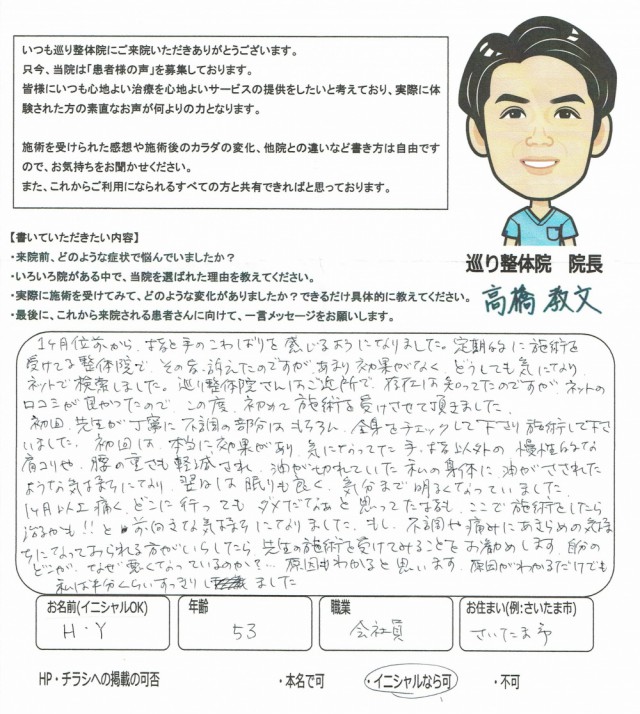 いつも巡り整体院にご来院いただきありがとうございます。
只今、当院は「患者様の声」を募集しております。
皆様にいつも心地よい治療を心地よいサービスの提供をしたいと考えており、実際に体
験された方の素直なお声が何よりの力となります。
施術を受けられた感想や施術後のカラダの変化、他院との違いなど書き方は自由です
ので、お気持ちをお聞かせください。
また、これからご利用になられるすべての方と共有できればと思っております。
【書いていただきたい内容】
・来院前、どのような症状で悩んでいましたか？
・いろいろ院がある中で、当院を選ばれた理由を教えてください。
・実際に施術を受けてみて、どのような変化がありましたか？できるだけ具体的に教えてください。
・最後に、これから来院される患者さんに向けて、一言メッセージをお願いします。
巡り整体院　院長
高橋教文
1ヶ月位前から、指と手のこわばりを感じるようになりました。定期的に施術を
受けてる整体院で、その旨、訴えたのですが、あまり効果がなく、どうしても気になり、
ネットで検索しました。巡り整体院さんはご近所で、存在は知ってたのですが、ネットの
口コミが良かったので、この度、初めて施術を受けさせて頂きました。
初回、先生が丁寧に不調の部分はもちろん、全身をチェックして下さり施術して下さ
いました。初回は、本当に効果があり、気になってた手、指以外の慢性的な
肩コリや、腰の重さも軽減され、油が切れていた私の身体に油がさされた
ような気持ちになり、翌日は眠りも良く、気分まで明るくなっていました。
1ヶ月以上痛く、どこに行ってもダメだなぁと思ってた指も、ここで施術をしたら
治るかも!!と前向きな気持ちになりました。もし、不調や痛みにあきらめの気持
ちになっておられる方がいらしたら、先生の施術を受けてみることをお勧めします。自分の
どこが、なぜ悪くなっているのか?… 原因もわかると思います。原因がわかるだけでも
私は半分くらいすっきりしました
お名前(イニシャルOK)
H・Y
年齢
53
職業
会社員
お住まい(例:さいたま市)
さいたま市
HP・チラシへの掲載の可否
・本名で可
・イニシャルなら可
・不可